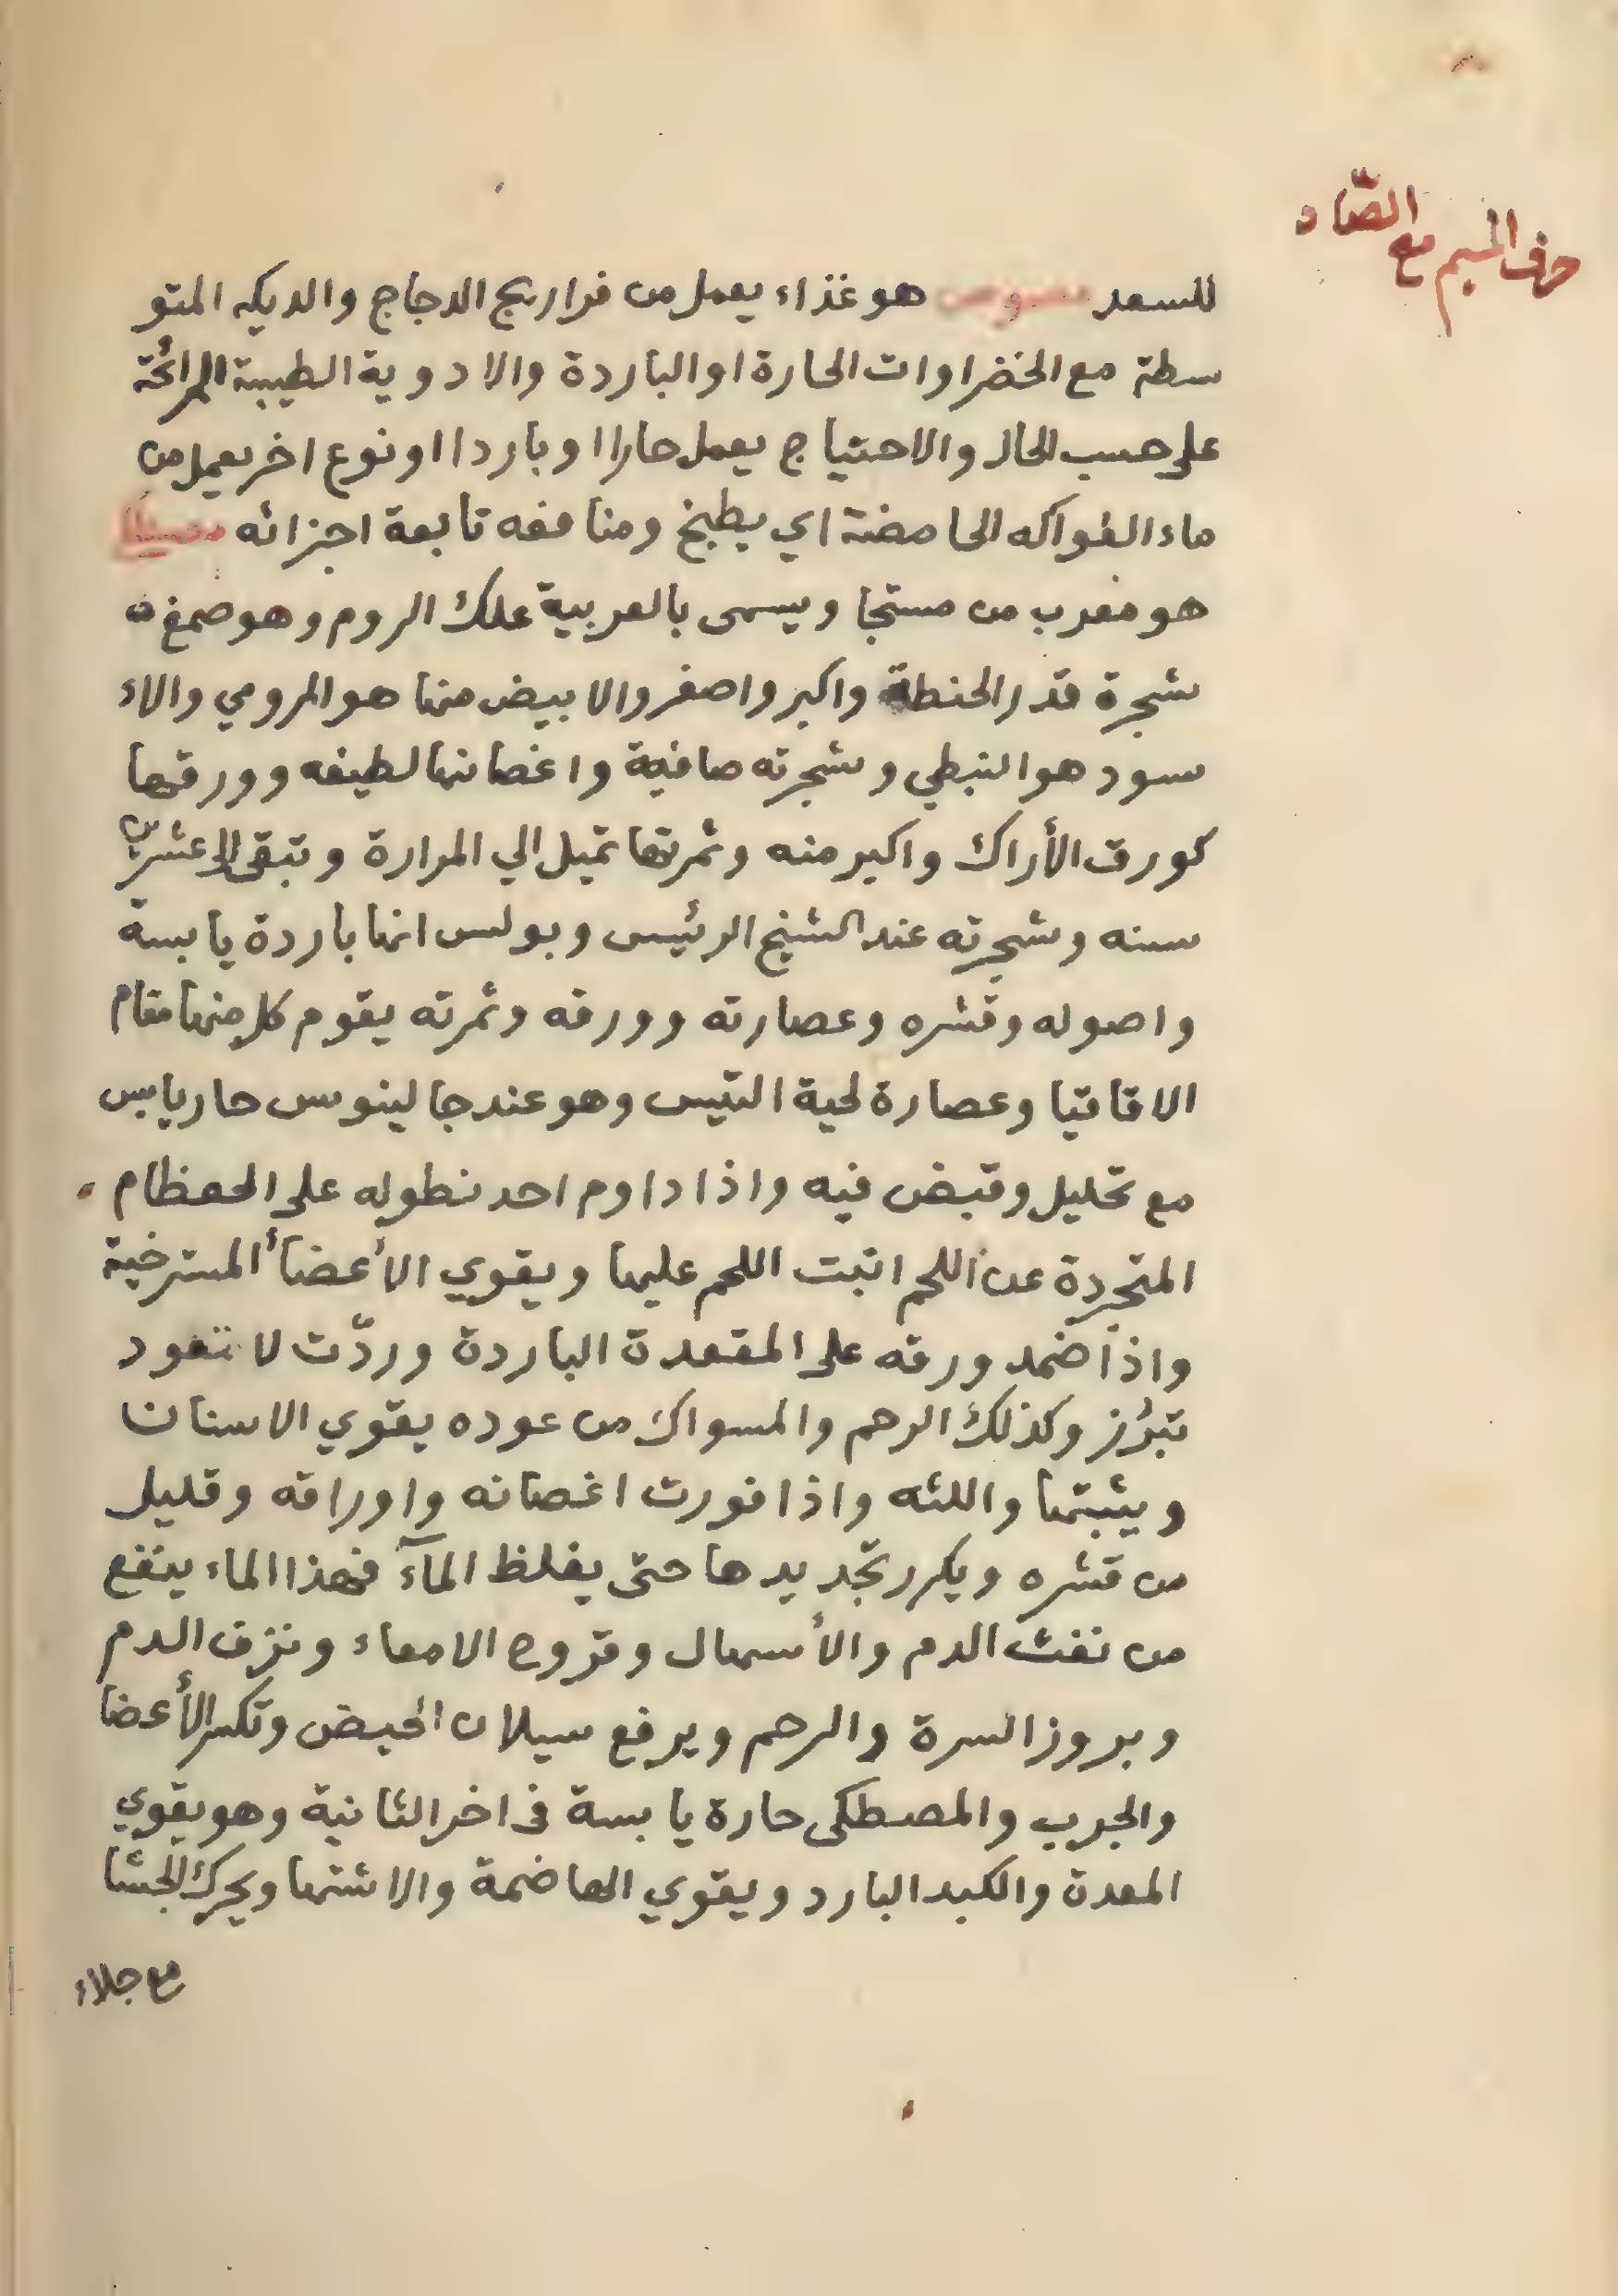 حرف الميم مع الصّاد
للسعد مصوص هو غذاء يعمل من فراريج الدجاج والديكه المتو
سطة مع الخضراوات الحارة او الباردة والادوية الطيبة الرائحة
على حسب الحال والاحتياج يعمل حارا او باردا او نوع اخر يعمل من
ماء الفواكه الحامضة اي يطبخ ومنافعه تابعة اجزائه
هو معرب من مستجا ويسمى بالعربية علك الروم وهو صمغ
شجرة قدر الحنطة واكبر واصغر والابيض منها هو الرومي والا
سود هو النبطي وشجرته صافية واغصانها لطيفه وورقها
كورق الأراك واكبر منه وثمرتها تميل الي المرارة وتبقى الى عشرين
سنه وشجرته عند الشيخ الرئيس وبولس انها باردة يابسة
واصوله وقشره وعصارته وورقه وثمرته يقوم كل منها مقام
الاقاقيا وعصارة لحية التيس وهو عند جالينوس حار يابس
مع تحليل وقبض فيه واذا داوم احد نطوله على العظام
المتجردة عن اللحم انبت اللحم عليها ويقوي الأعضأ المسترخية
واذا ضمد ورقه على المقعدة الباردة وردّت لا تعود
تبرُز وكذلك الرحم والمسواك من عوده يقوي الاسنان
ويثبتها واللثه واذا فورت اغصانه واوراقه وقليل
من قشره ويكرر تجديدها حتى يغلظ المآء فهذا الماء ينفع
من نفث الدم والأسهال وقروح الامعاء ونزف الدم
وبروز السرة والرحم ويرفع سيلان الحيض وتكسر الأعضا
والجرب والمصطكى حارة يابسة فى اخر الثانية وهو يقوي
المعدة والكبد البارد ويقوي الهاضمة والاشتها ويحرك الجشا
مع جلاء